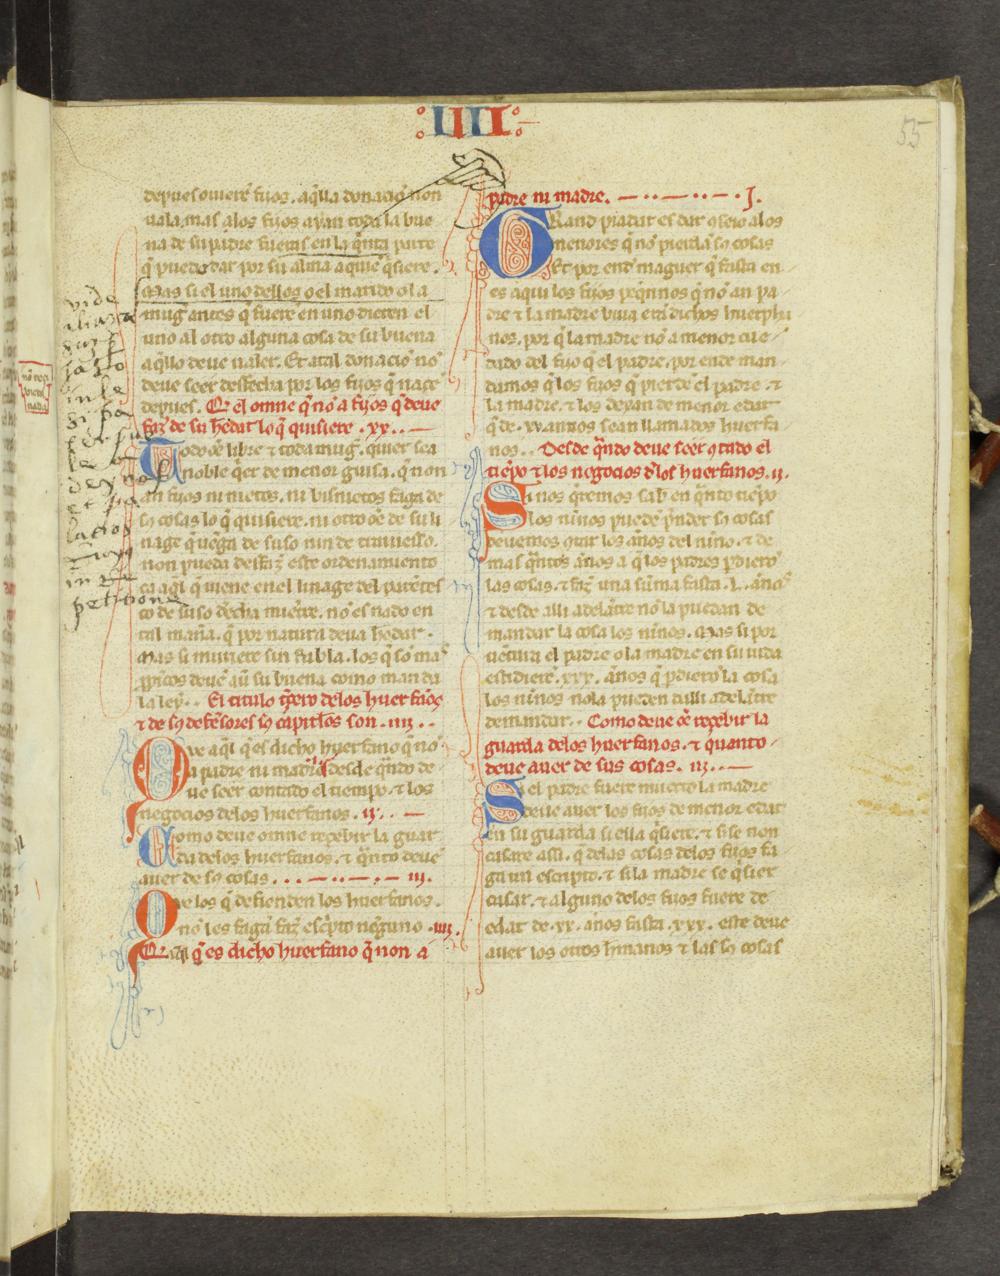 IIII
55
depues ouiere fijos. aq̃lla donaciõ non
uala. mas alos fijos ayan toda la bue
na de su padre fueras en la q̃nta parte
q̃ puede dar por su alma a quie q̃siere.
Mas si el uno dellos o el marido o la
mug̃ antes q̃ fuere en uno dieren el
uno al otro alguna cosa de su buena
aq̃llo deue ualer. Et atal donaciõ no
deue seer desfecha por los fijos q̃ nace
depues. Q̃ el omne q̃ nõ a fijos q̃ deue
faz̃ de su hedat lo q̃ quisiere .xx.
Todo õe libre τ toda mug̃. quier sea
noble q̃er de menor guisa. q̃ non
an fijos ni nietos. ni bisnietos faga de
sꝯ cosas lo q̃ quisiere. ni otro õe de su li
nage q̃ uẽga de suso nin de trauiesso.
non pueda desfaz̃ este ordenamiento
ca aq̃l q̃ uiene en el linage del parẽtes
co de suso decha muerte. no es nado en
tal maña. q̃ por natura deua hedar.
Mas si muriere sin fabla. los q̃ sõ mas
ꝓpĩcos deuẽ auer su buena como manda
la ley. El titulo t̃cero delos huerfanos
τ de sꝯ defẽsores sꝯ capitlos son .iiij.
Que aqui q̃ es dicho huerfano q̃ nõ
a padre ni madre desde q̃ndo de
ue seer contado el tiempo. τ los
negocios delos huerfanos. ij.
Como deue omne reçebir la guar
da delos huerfanos. τ q̃nto deue
auer de sꝯ cosas. iij.
De los q̃ defienden los huerfanos.
nõ les fagã faz̃ esc̃pto neguno .iiij.
Q̃ aqui q̃ es dicho huerfano q̃ non a
padre ni madre. I.
Grand piadat es dar cõseio alos
menores q̃ nõ pierdã sꝯ cosas
Et por end maguer q̃ fasta en
es aqui los fijos peq̃nnos q̃ nõ an pa
dre τ la madre biua erã dichos huerpha
nos. por q̃ la madre nõ a menor cuy
dado del fijo q̃ el padre. por ende man
damos q̃ los fijos q̃ pierdẽ el padre. τ
la madre. τ los dexan de menor edat
q̃ de .xv. annos sean llamados huerfa
nos. Desde q̃ndo deue seer cõtado el
tiẽpo τ los negocios dlos huerfanos. ij.
Si nos q̃remos sab̃ en q̃nto tiẽpo
los niños puedẽ p̃nder sꝯ cosas
deuemos cõtar los años del niño. τ de
mas q̃ntos años a q̃ los padres ꝑdierõ
las cosas. τ faz̃ una sũma fasta .L. años
τ desde alli adelãtre nõ la puedan de
mandar la cosa los niños. Mas si por
uẽtura el padre o la madre en su uida
estidierẽ .xxx. años q̃ ꝑdierõ la cosa
los niños nola pueden dalli adelãtre
demandar. Como deue õe reçebir la
guarda delos huerfanos. τ quanto
deue auer de sus cosas. iij.
Si el padre fuere muerto la madre
deue auer los fijos de menor edat
en su guarda si ella q̃siere. τ si se non
casare assi. q̃ delas cosas delos fijos fa
ga un escripto. τ si la madre se q̃sier
casar. τ alguno delos fijos fuere de
edat de .xx. años fasta .xxx. este deue
auer los otros h̃manos τ las sꝯ cosas